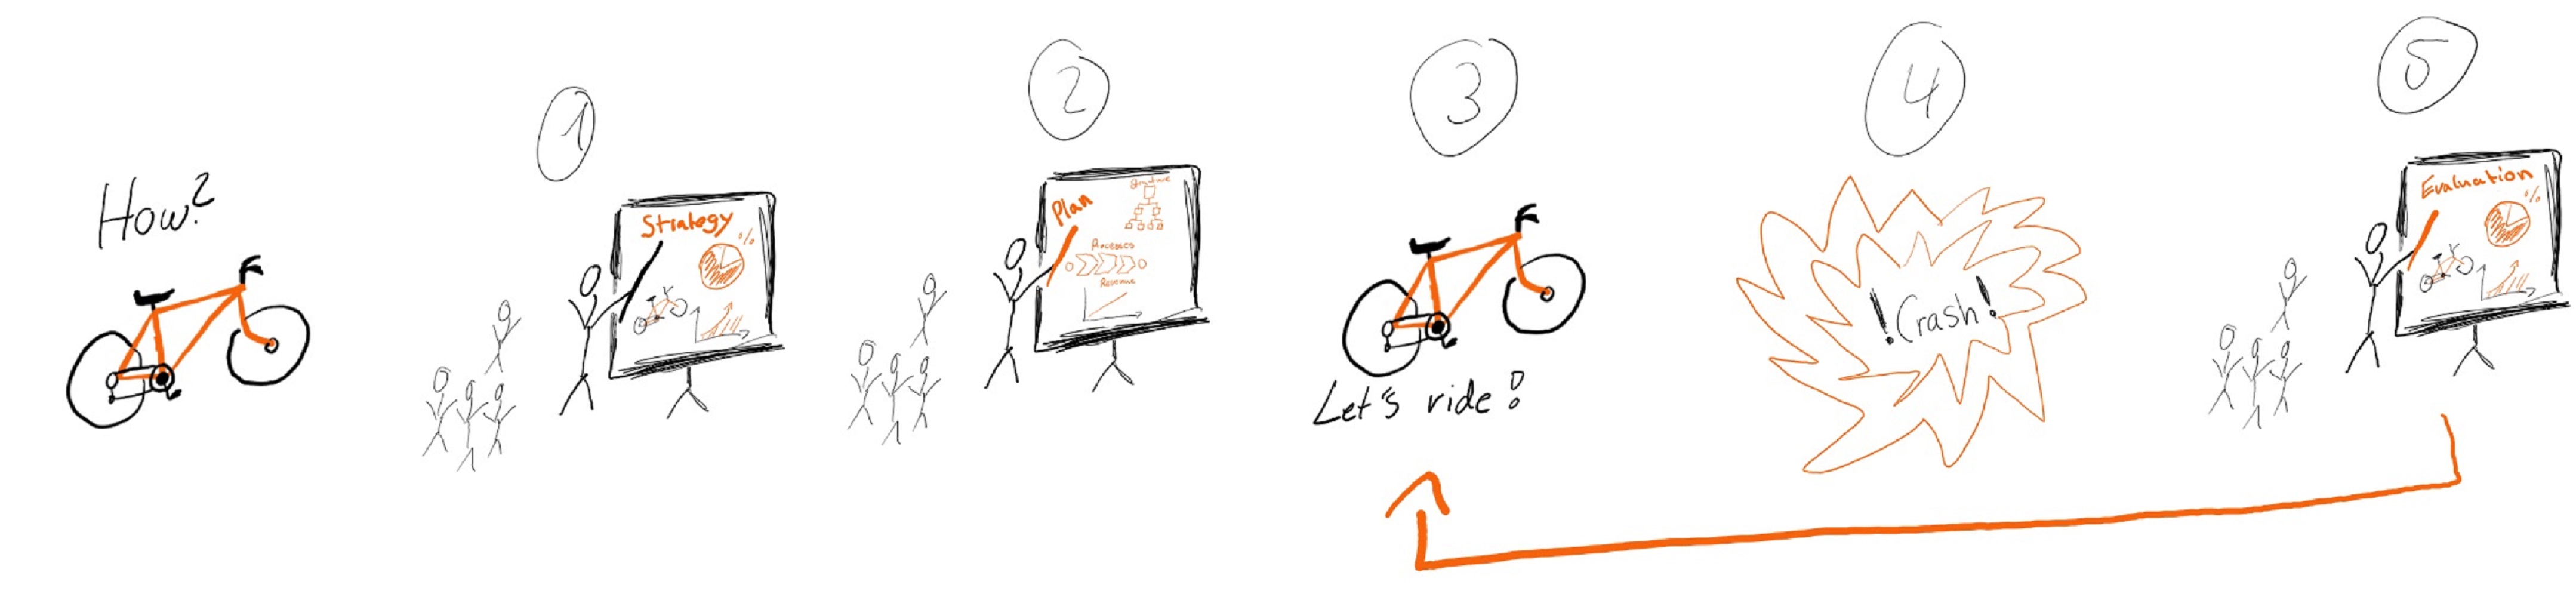 How?
1
Strategy
%
2
Plan
Structure
Processes
Revenue
3
Let's ride!
4
!Crash!
5
Evaluation
%